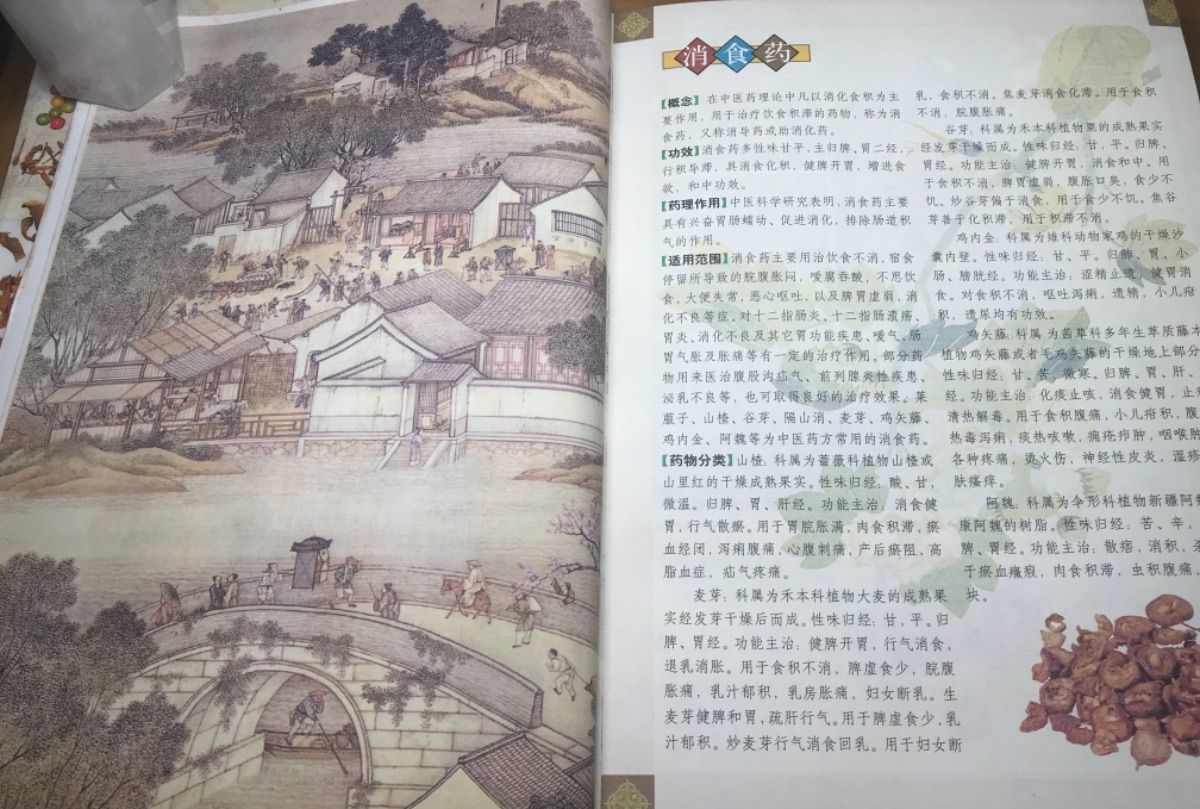 消食药
【概念】 在中医药理论中凡以消化食积为主
要作用，用于治疗饮食积滞的药物，称为消
食药，又称消导药或助消化药。
【功效】消食药多性味甘平，主归脾、胃二经，
行积导滞，具消食化积，健脾开胃，增进食
欲，和中功效。
【药理作用】中医科学研究表明，消食药主要
具有兴奋胃肠蠕动、促进消化，排除肠道积
气的作用。
【适用范围】消食药主要用治饮食不消，宿食
停留所导致的脘腹胀闷，嗳腐吞酸，不思饮
食，大便失常，恶心呕吐，以及脾胃虚弱，消
化不良等症，对十二指肠炎、十二指肠溃疡、
胃炎、消化不良及其它胃功能疾患、嗳气、肠
胃气胀及胀痛等有一定的治疗作用。部分药
物用来医治腹股沟疝气、前列腺炎性疾患、
泌乳不良等，也可取得良好的治疗效果。莱
菔子、山楂、谷芽、隔山消、麦芽、鸡矢藤、
鸡内金、阿魏等为中医药方常用的消食药。
【药物分类】山楂：科属为蔷薇科植物山楂或
山里红的干燥成熟果实。性味归经：酸、甘，
微温。归脾、胃、肝经。功能主治：消食健
胃，行气散瘀。用于胃脘胀满，肉食积滞，瘀
血经闭，泻痢腹痛，心腹刺痛，产后瘀阻，高
脂血症，疝气疼痛。
麦芽：科属为禾本科植物大麦的成熟果
实经发芽干燥后而成。性味归经：甘，平。归
脾、胃经。功能主治：健脾开胃，行气消食，
退乳消胀。用于食积不消，脾虚食少，脘腹
胀痛，乳汁郁积，乳房胀痛，妇女断乳。生
麦芽健脾和胃，疏肝行气。用于脾虚食少，乳
汁郁积。炒麦芽行气消食回乳。用于妇女断
乳，食积不消。焦麦芽消食化滞。用于食积
不消，脘腹胀痛。
谷芽：科属为禾本科植物粟的成熟果实
经发芽干燥而成。性味归经：甘，平。归脾、
胃经。功能主治：健脾开胃，消食和中。用
于食积不消，脾胃虚弱，腹胀口臭，食少不
饥。炒谷芽偏于消食，用于食少不饥。焦谷
芽善于化积滞。用于积滞不消。
鸡内金：科属为雉科动物家鸡的干燥沙
囊内壁。性味归经：甘、平。归脾、胃、小
肠、膀胱经。功能主治：涩精止遗，健胃消
食。对食积不消，呕吐泻痢，遗精，小儿疳
积，遗尿均有功效。
鸡矢藤：科属为茜草科多年生草质藤本
植物鸡矢藤或者毛鸡矢藤的干燥地上部分
性味归经：甘、苦，微寒。归脾、胃、肝、
经。功能主治：化痰止咳，消食健胃，止
清热解毒。用于食积腹痛，小儿疳积，腹
热毒泻痢，痰热咳嗽，痈疮疖肿，咽喉肿
各种疼痛，烫火伤，神经性皮炎，湿疹
肤瘙痒。
阿魏：科属为伞形科植物新疆阿魏
康阿魏的树脂。性味归经：苦、辛，
脾、胃经。功能主治：散痞，消积，杀
于瘀血癥瘕，肉食积滞，虫积腹痛，
块。